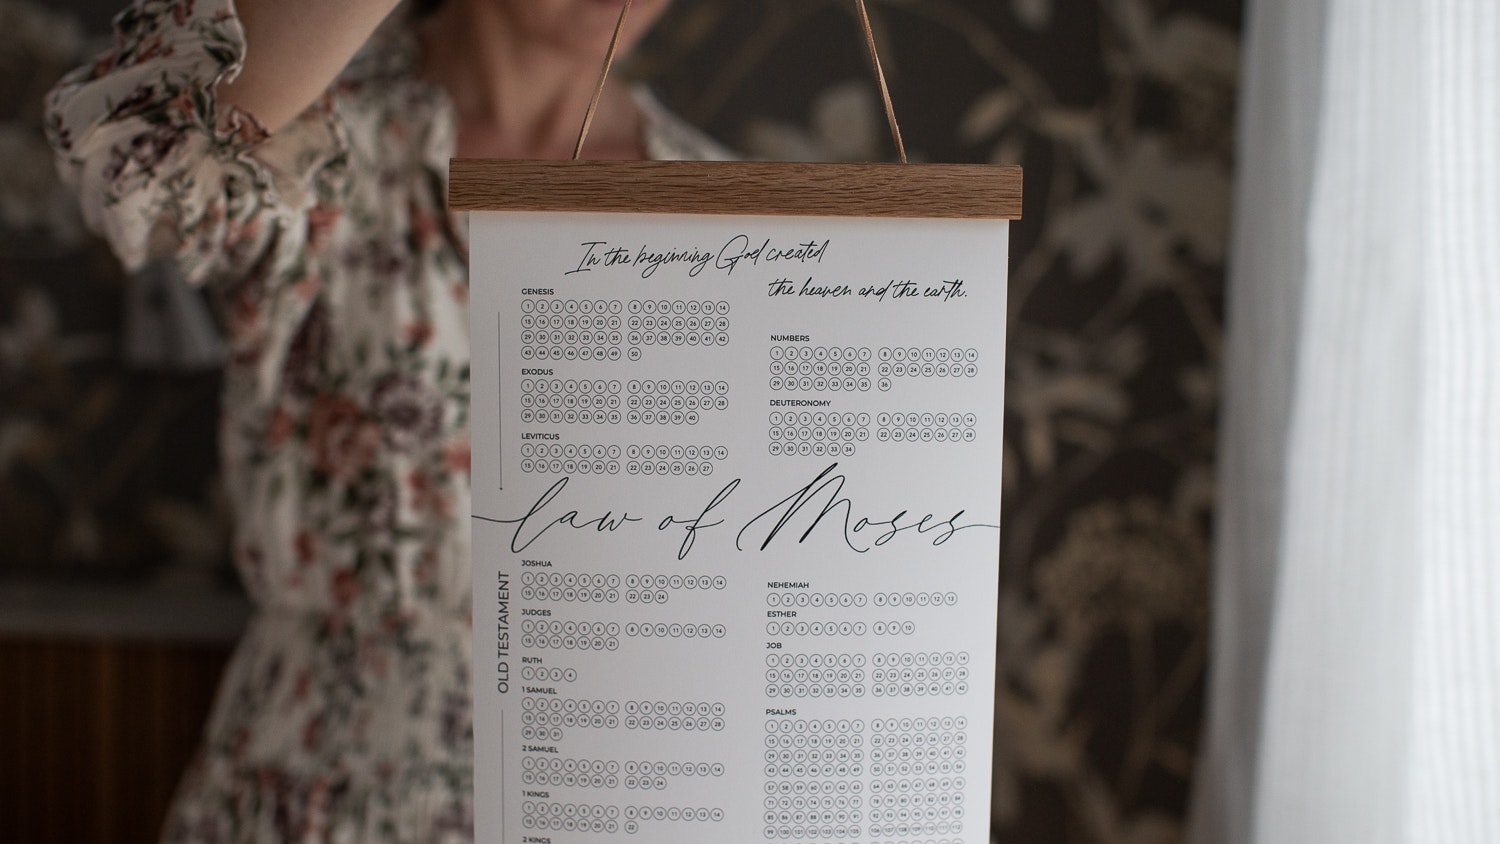 In the beginning God created
the heaven and the earth.
GENESIS
1 2 3 4 5 6 7 8 9 10 11 12 13 14
15 16 17 18 19 20 21 22 23 24 25 26 27 28
29 30 31 32 33 34 35 36 37 38 39 40 41 42
43 44 45 46 47 48 49 50
EXODUS
1 2 3 4 5 6 7 8 9 10 11 12 13 14
15 16 17 18 19 20 21 22 23 24 25 26 27 28
29 30 31 32 33 34 35 36 37 38 39 40
LEVITICUS
1 2 3 4 5 6 7 8 9 10 11 12 13 14
15 16 17 18 19 20 21 22 23 24 25 26 27
NUMBERS
1 2 3 4 5 6 7 8 9 10 11 12 13 14
15 16 17 18 19 20 21 22 23 24 25 26 27 28
29 30 31 32 33 34 35 36
DEUTERONOMY
1 2 3 4 5 6 7 8 9 10 11 12 13 14
15 16 17 18 19 20 21 22 23 24 25 26 27 28
29 30 31 32 33 34
law of Moses
OLD TESTAMENT
JOSHUA
1 2 3 4 5 6 7 8 9 10 11 12 13 14
15 16 17 18 19 20 21 22 23 24
JUDGES
1 2 3 4 5 6 7 8 9 10 11 12 13 14
15 16 17 18 19 20 21
RUTH
1 2 3 4
1 SAMUEL
1 2 3 4 5 6 7 8 9 10 11 12 13 14
15 16 17 18 19 20 21 22 23 24 25 26 27 28
29 30 31
2 SAMUEL
1 2 3 4 5 6 7 8 9 10 11 12 13 14
15 16 17 18 19 20 21 22 23 24
1 KINGS
1 2 3 4 5 6 7 8 9 10 11 12 13 14
15 16 17 18 19 20 21 22
2 KINGS
NEHEMIAH
1 2 3 4 5 6 7 8 9 10 11 12 13
ESTHER
1 2 3 4 5 6 7 8 9 10
JOB
1 2 3 4 5 6 7 8 9 10 11 12 13 14
15 16 17 18 19 20 21 22 23 24 25 26 27 28
29 30 31 32 33 34 35 36 37 38 39 40 41 42
PSALMS
1 2 3 4 5 6 7 8 9 10 11 12 13 14
15 16 17 18 19 20 21 22 23 24 25 26 27 28
29 30 31 32 33 34 35 36 37 38 39 40 41 42
43 44 45 46 47 48 49 50 51 52 53 54 55 56
57 58 59 60 61 62 63 64 65 66 67 68 69 70
71 72 73 74 75 76 77 78 79 80 81 82 83 84
85 86 87 88 89 90 91 92 93 94 95 96 97 98
99 100 101 102 103 104 105 106 107 108 109 110 111 112